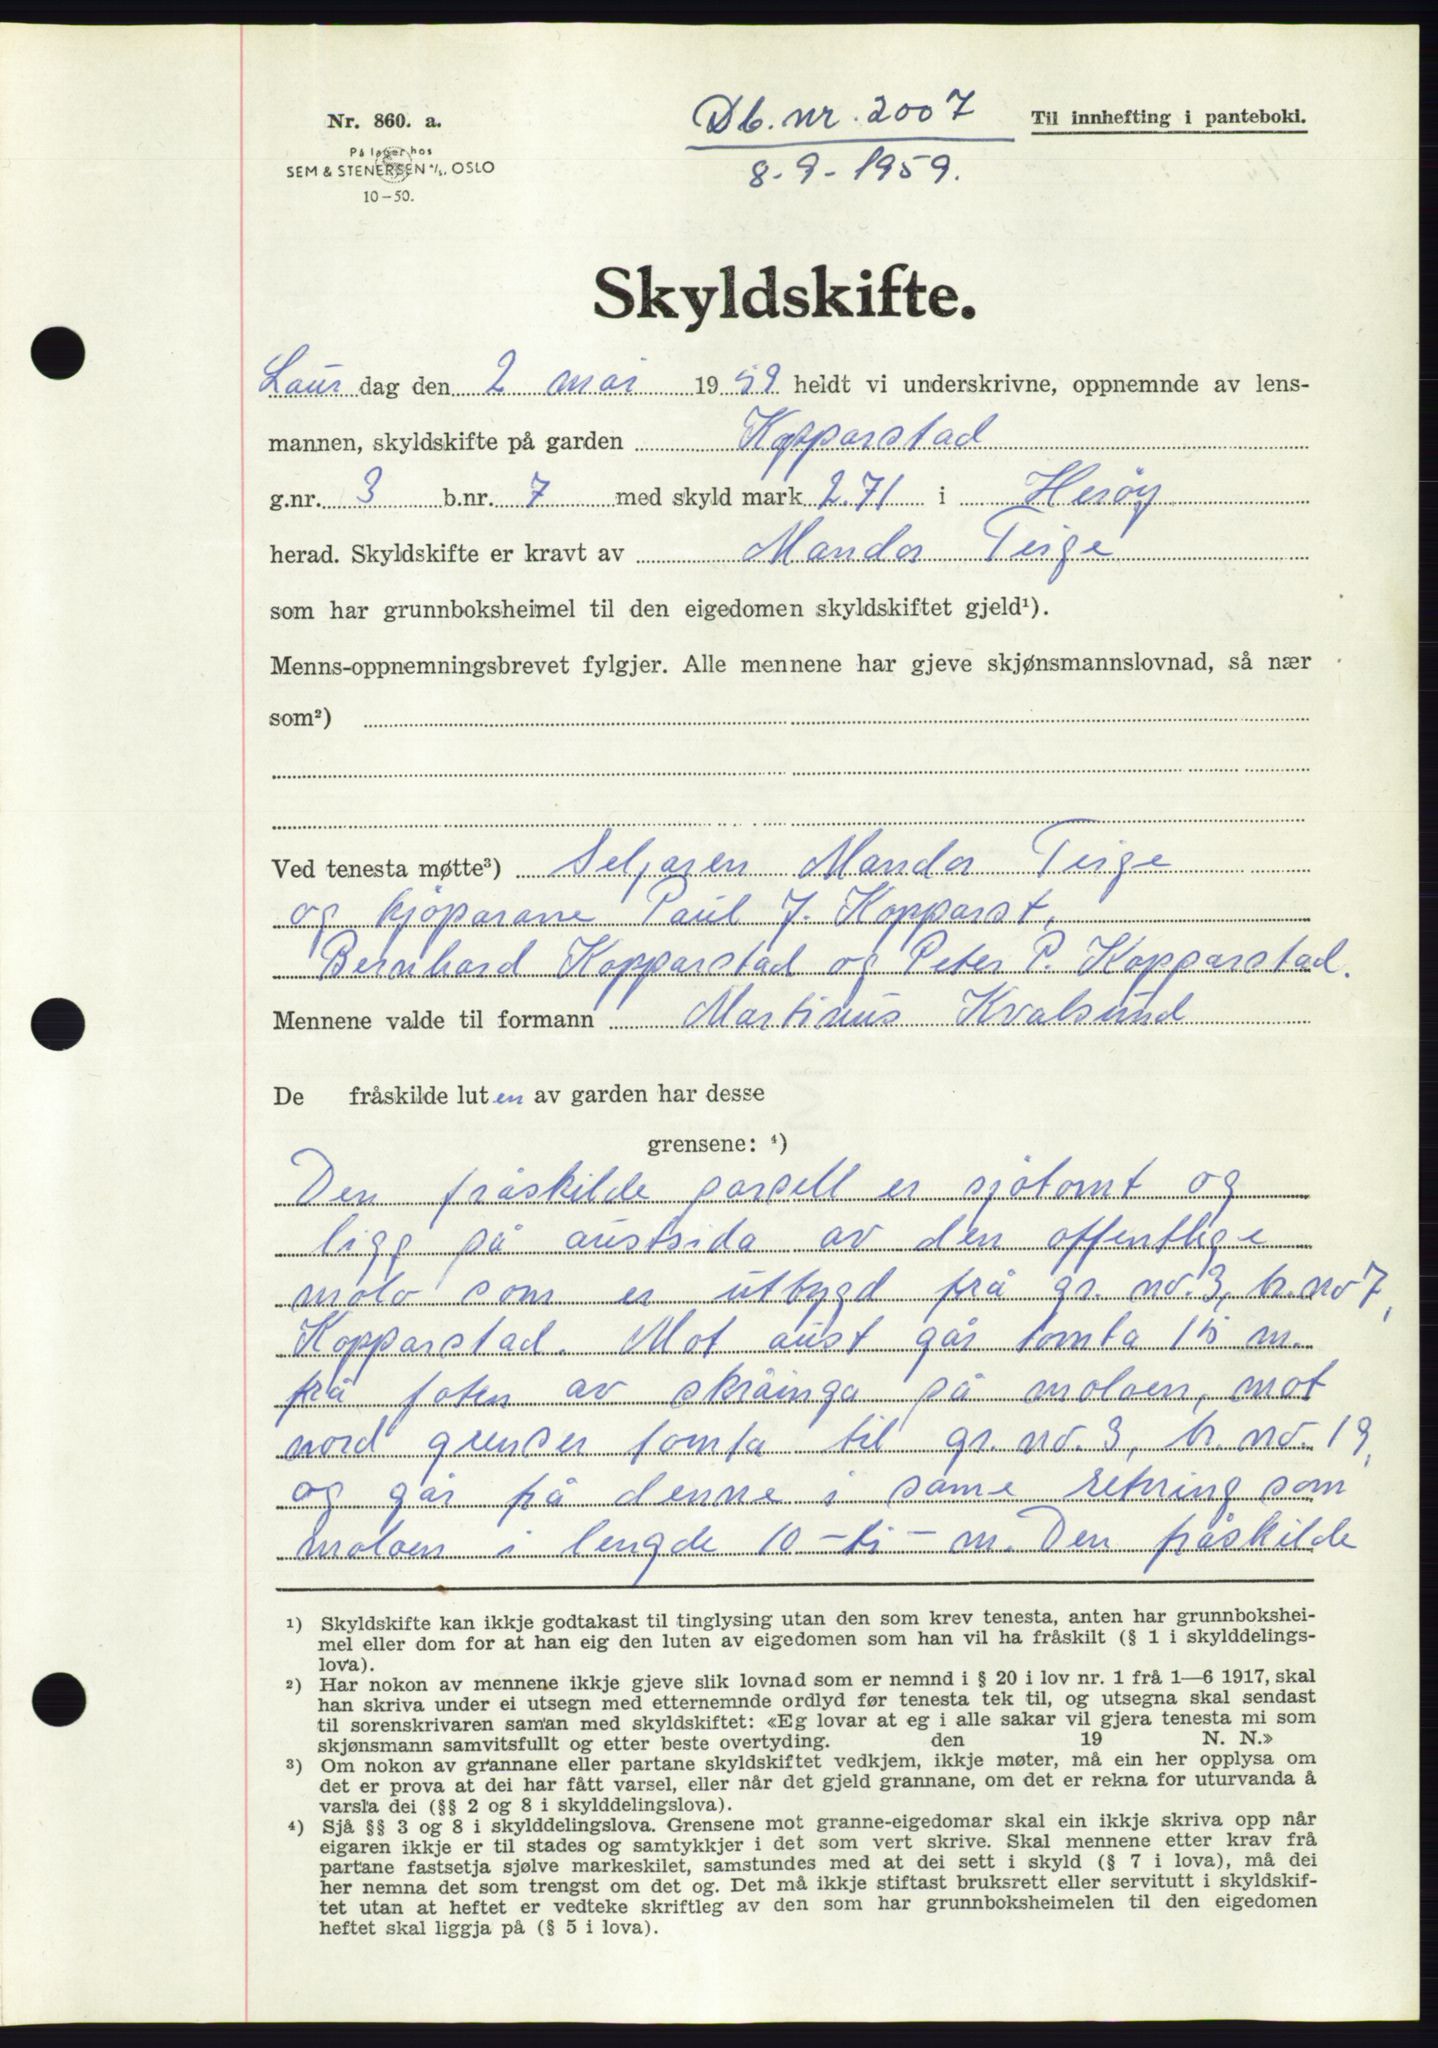 Nr. 860. a.
På lager hos
SEM & STENERSEN A/S, OSLO
10-50.
Db. nr. 2007
8-9-1959.
Til innhefting i panteboki.
Skyldskifte.
Laur dag den 2 mai 1959 heldt vi underskrivne, oppnemnde av lens-
mannen, skyldskifte på garden Kopparstad
g.nr. 3 b.nr. 7 med skyld mark 2.71 i Herøy
herad. Skyldskifte er kravt av Mandor Teige
som har grunnboksheimel til den eigedomen skyldskiftet gjeld¹).
Menns-oppnemningsbrevet fylgjer. Alle mennene har gjeve skjønsmannslovnad, så nær
som²)
Ved tenesta møtte³) Seljaren Mandor Teige
og kjöparane Paul J. Kopparst,
Bernhard Kopparstad og Peter P. Kopparstad.
Mennene valde til formann Martinus Kvalsund
De fråskilde luten av garden har desse
grensene: ⁴)
Den fråskilde parsell er sjötomt og
ligg på austsida av den offentlege
molo som er utbygd frå gr. no. 3, br. no 7,
Kopparstad. Mot aust går tomta m.
frå foten av skråinga på moloen, mot
nord grenser tomta til gr. no. 3, br. no. 19,
og går frå denne i same retning som
moloen i lengde 10 - ti - m. Den fråskilde
¹) Skyldskifte kan ikkje godtakast til tinglysing utan den som krev tenesta, anten har grunnbokshei-
mel eller dom for at han eig den luten av eigedomen som han vil ha fråskilt (§ 1 i skylddelings-
lova).
²) Har nokon av mennene ikkje gjeve slik lovnad som er nemnd i § 20 i lov nr. 1 frå 1—6 1917, skal
han skriva under ei utsegn med etternemnde ordlyd før tenesta tek til, og utsegna skal sendast
til sorenskrivaren saman med skyldskiftet: «Eg lovar at eg i alle sakar vil gjera tenesta mi som
skjønsmann samvitsfullt og etter beste overtyding. den 19 N. N.»
³) Om nokon av grannane eller partane skyldskiftet vedkjem, ikkje møter, må ein her opplysa om
det er prova at dei har fått varsel, eller når det gjeld grannane, om det er rekna for uturvanda å
varsla dei (§§ 2 og 8 i skylddelingslova).
⁴) Sjå §§ 3 og 8 i skylddelingslova. Grensene mot granne-eigedomar skal ein ikkje skriva opp når
eigaren ikkje er til stades og samtykkjer i det som vert skrive. Skal mennene etter krav frå
partane fastsetja sjølve markeskilet, samstundes med at dei sett i skyld (§ 7 i lova), må dei
her nemna det som trengst om det og. Det må ikkje stiftast bruksrett eller servitutt i skyldskif-
tet utan at heftet er vedteke skriftleg av den som har grunnboksheimelen til den eigedomen
heftet skal liggja på (§ 5 i lova).